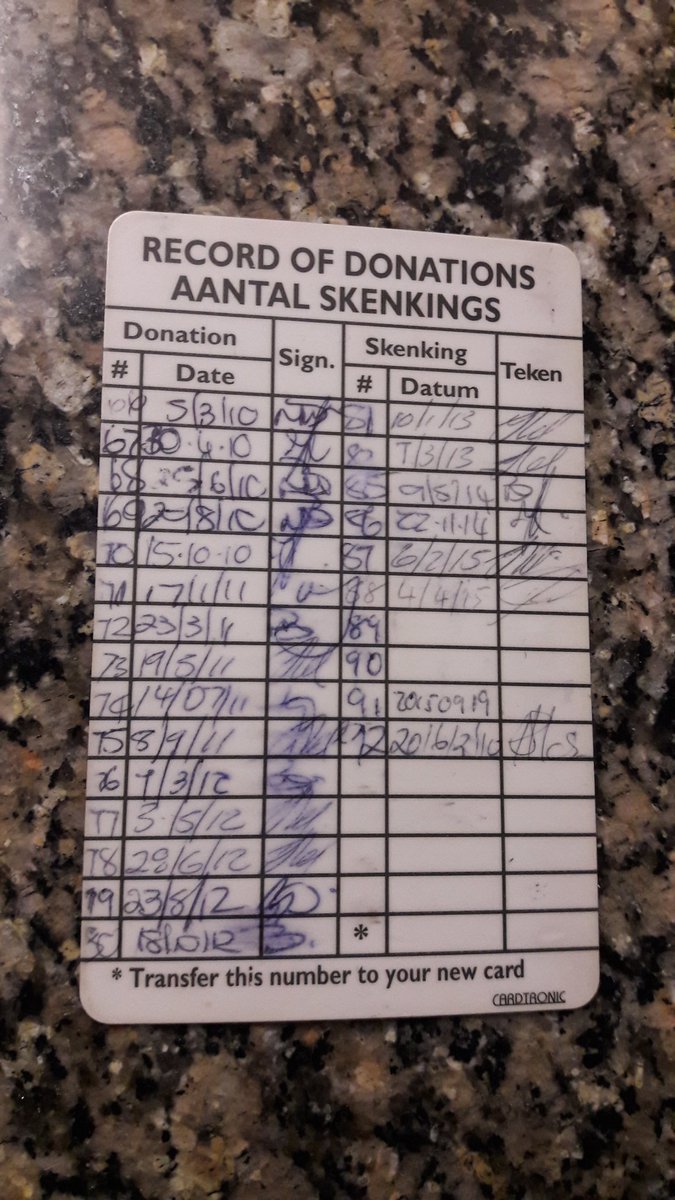 RECORD OF DONATIONS
AANTAL SKENKINGS
Donation Sign. Skenking Teken
# Date # Datum
5/3/10 81 10/1/13
67 30.4.10 7/3/13
68 /6/10 9/8/14
69 /8/10 86 22.11.14
70 15.10.10 87 6/2/15
71 17/1/11 88 4/4/15
72 23/3/11 89
73 19/5/11 90
74 14/07/11 91 20150919
75 8/9/11 20/6/2/10
76 7/3/12
77 3.5/12
78 28/6/12
79 23/8/12
18/10/12 *
* Transfer this number to your new card
CARDTRONIC